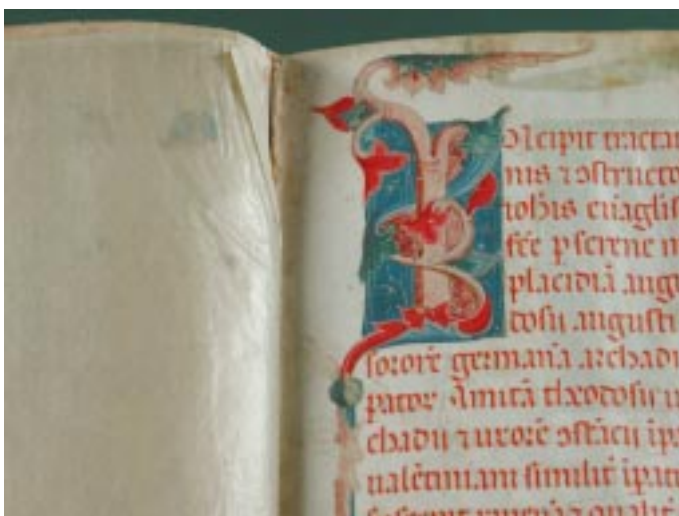 Incipit tractat
nis ⁊ ɔstructo
ioħis euãglis
fc̄e p serene m
placidiã aug
dosii augusti
sororē germana archadii
pator amitã theodosii
chadii ⁊ uxorē ɔstãcii ip
ualētiniani similit̄ ipat